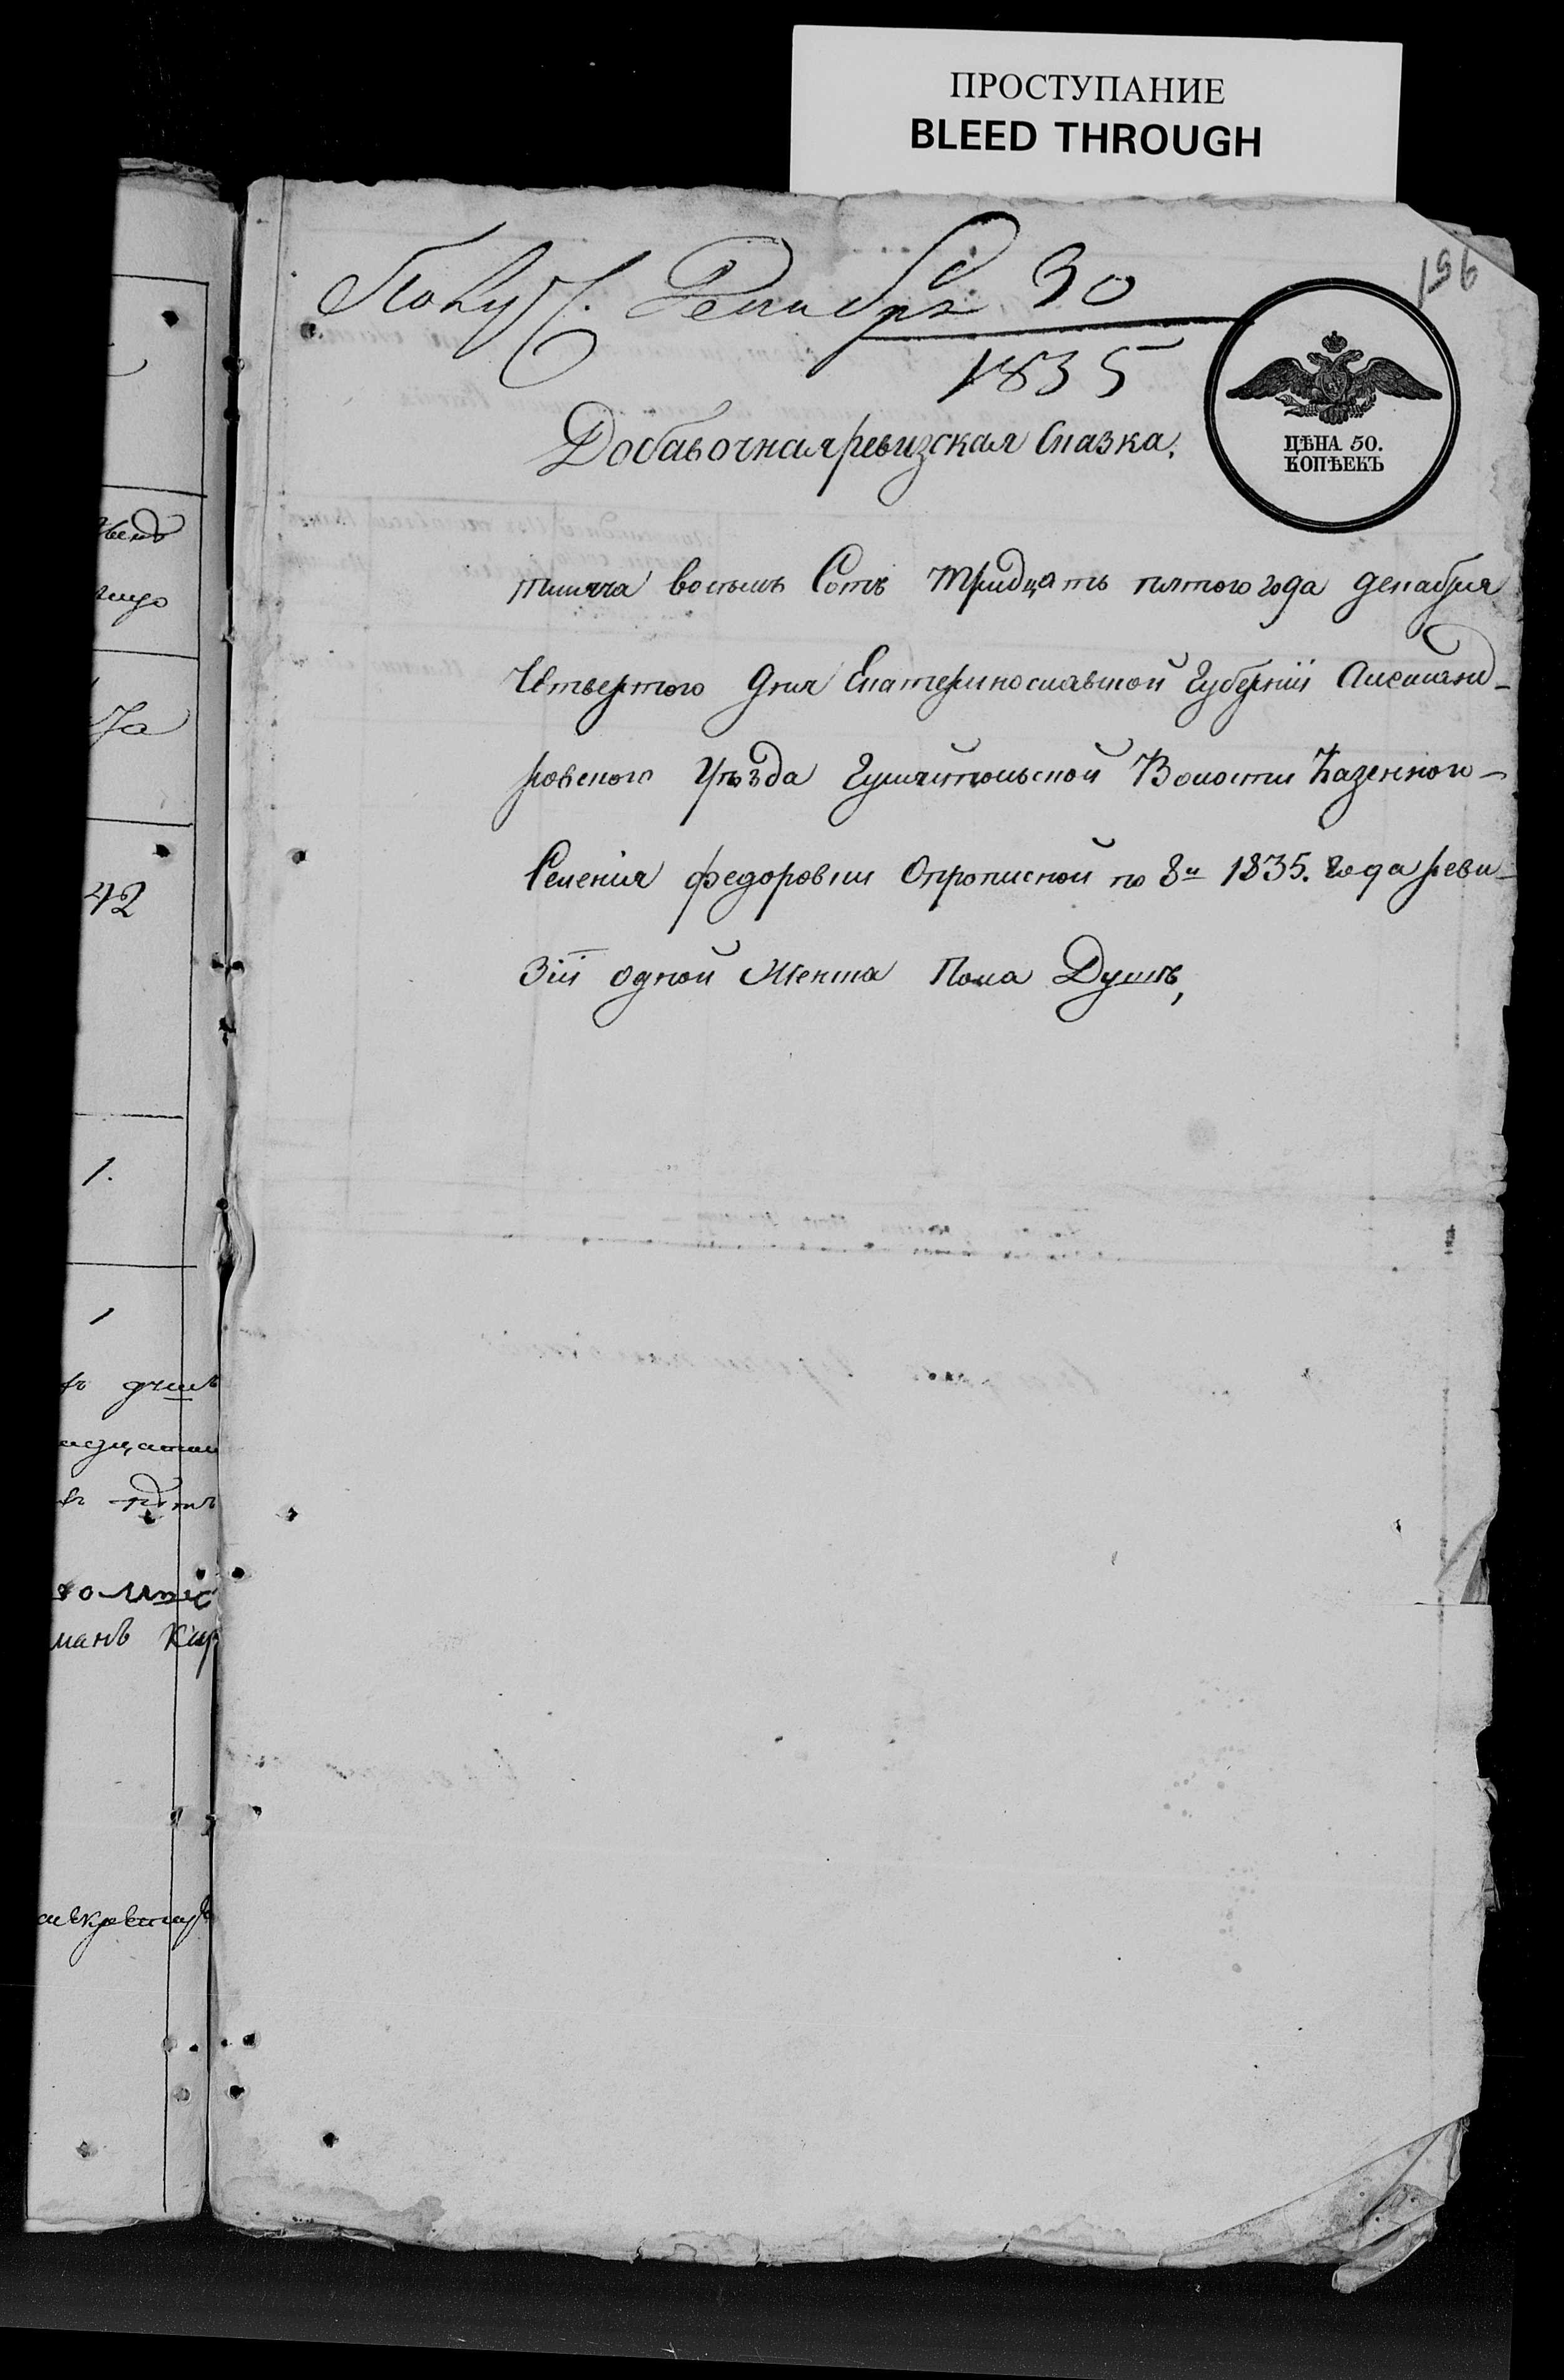 ПРОСТУПАНИЕ
BLEED THROUGH
196
Получ. Декабря 30
1835
ЦѢНА 50.
КОПѢЕКЪ
Добавочная ревизская Сказка.
тысяча восемь Сотъ тридцать пятого года декабря
Четвертого дня Екатеринославской Губерніи Александ-
ровского Уѣзда Гуляйпольской Волости Казенного-
Селенія Федоровки Опрописной по 8й 1835. года реви-
зіи одной Женска Пола Душѣ,
42
1.
1
манъ Кир